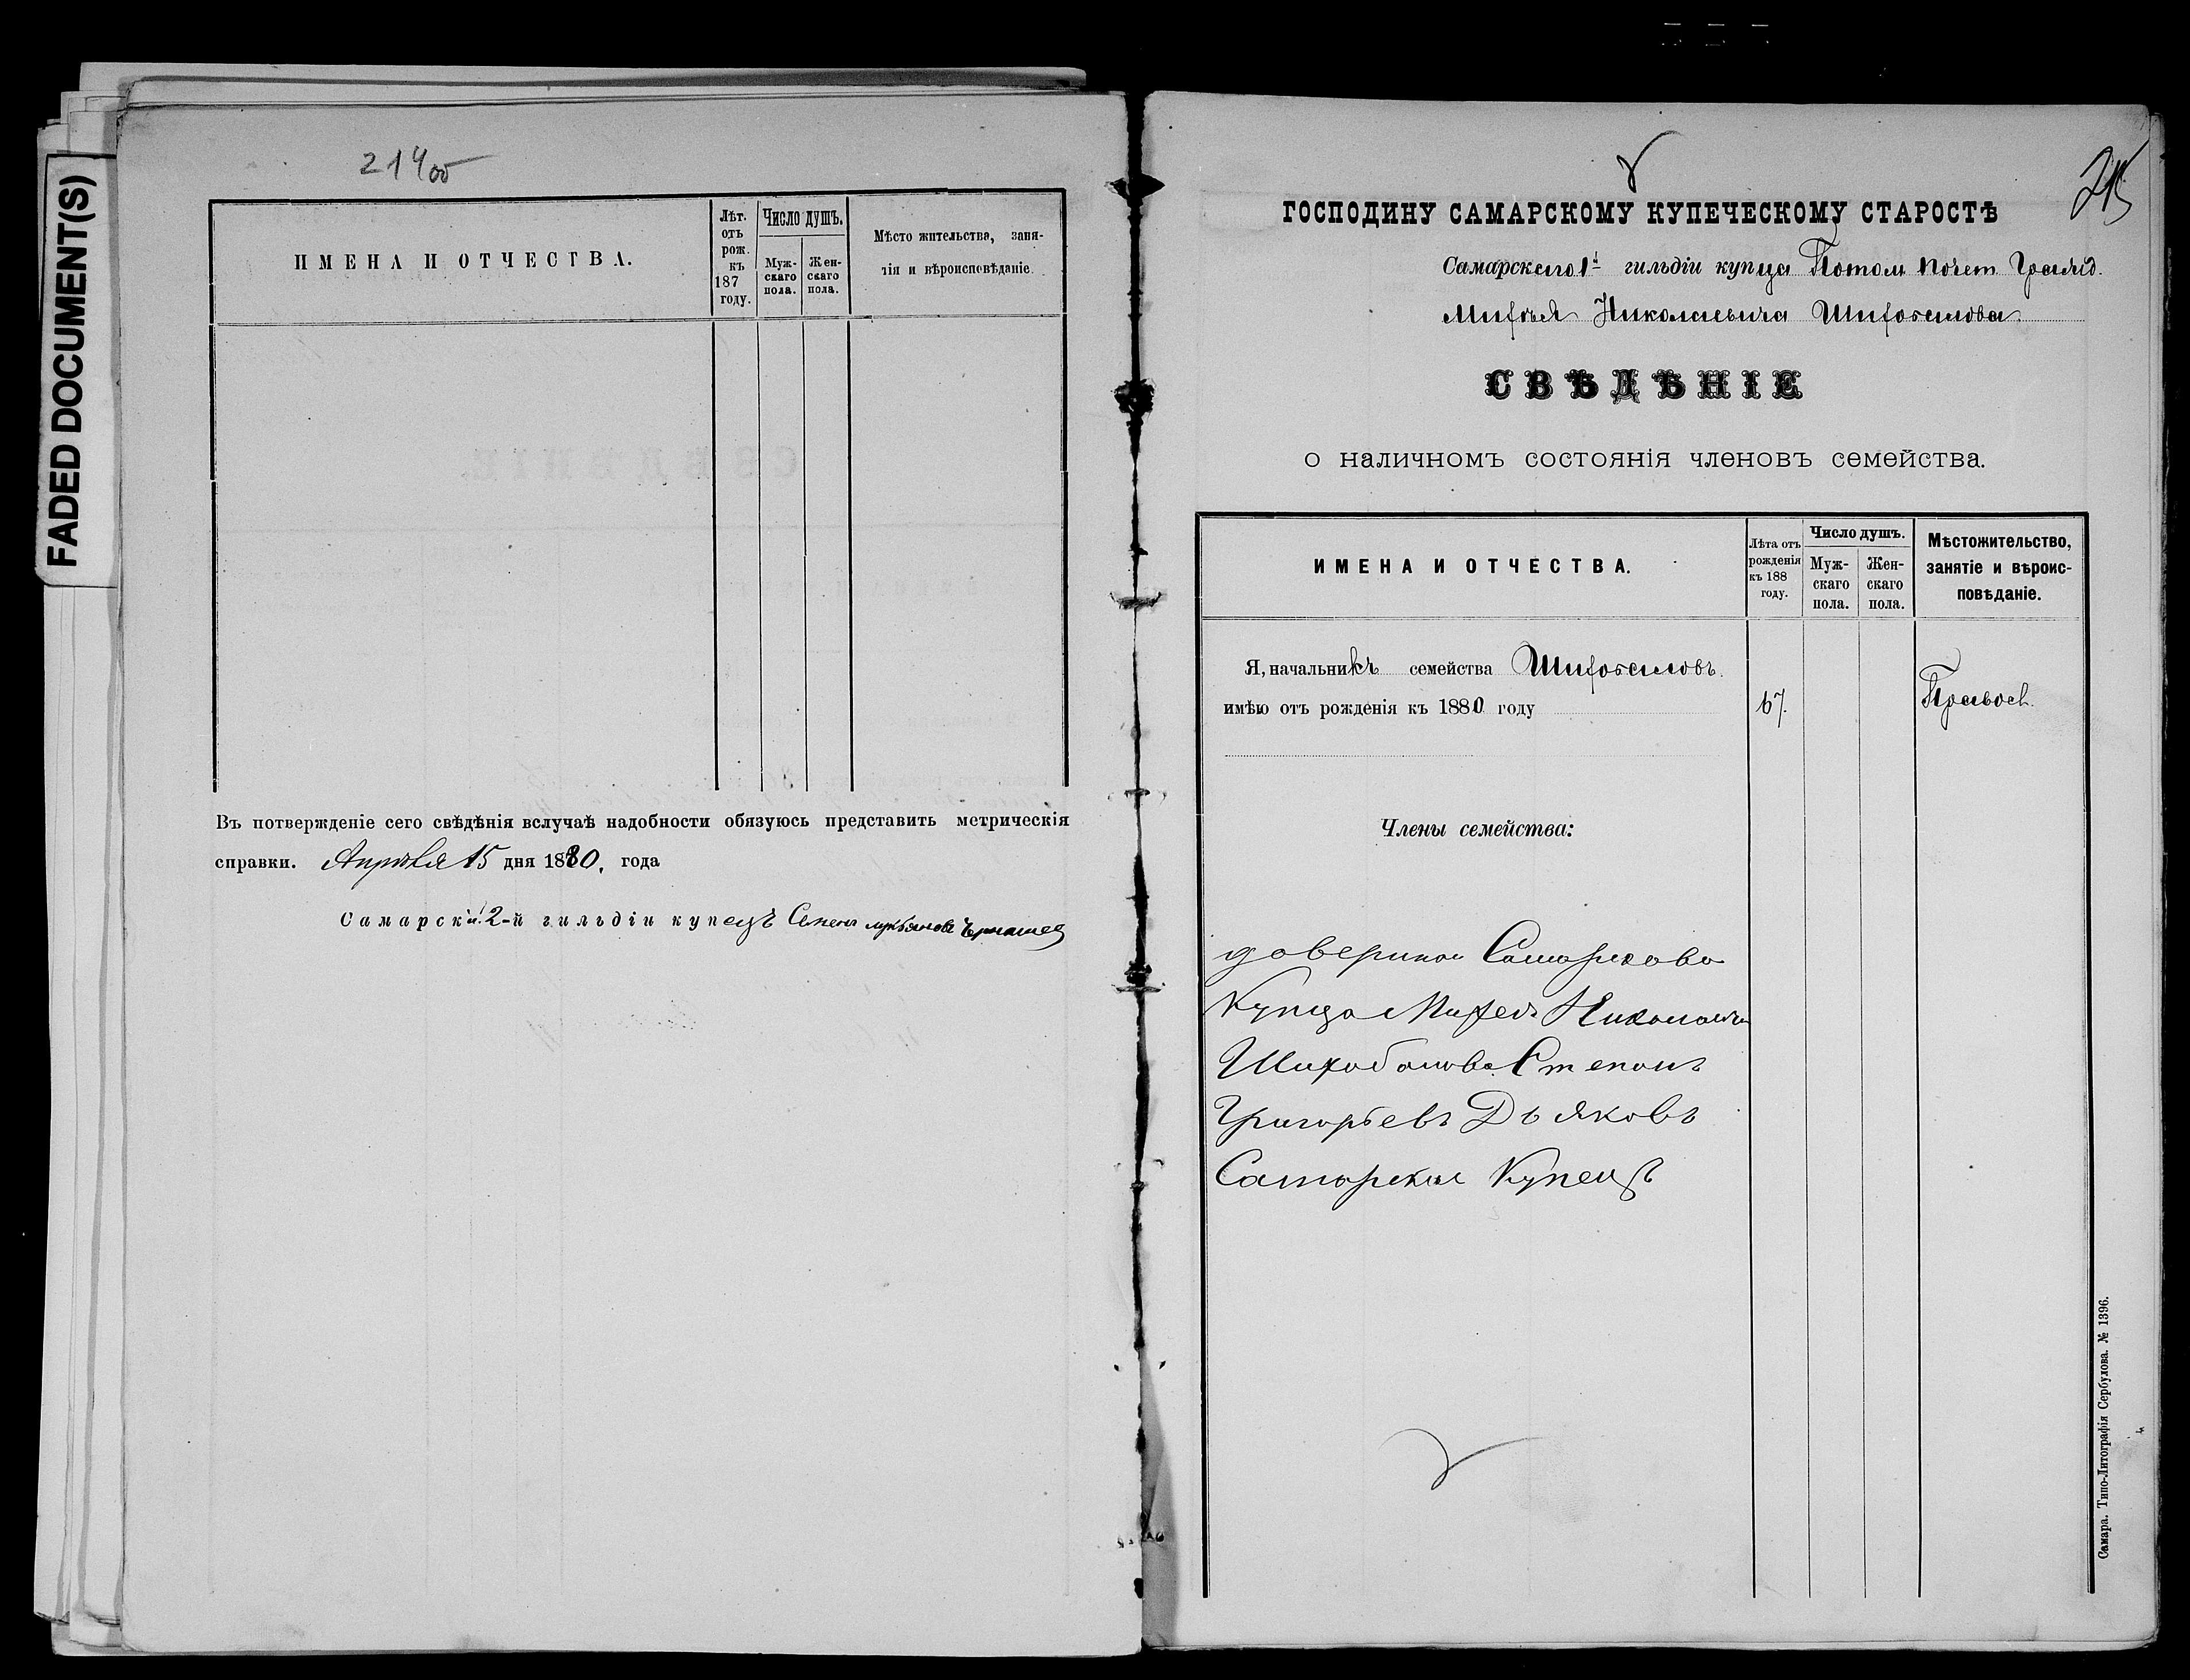 FADED DOCUMENT(S)
214об
ИМЕНА И ОТЧЕСТВА.
Лѣт. отъ рож. къ 187 году.
Число душъ.
Муж-скаго пола.
Жен-скаго пола.
Мѣсто жительства, заня-
тія и вѣроисповѣданіе.
Въ потвержденіе сего свѣдѣнія вслучаѣ надобности обязуюсь представить метрическія
справки. Апрѣля 15 дня 1880. года
Самарскій 2-й гильдіи купецъ Семенъ Лукьяновъ
215
ГОСПОДИНУ САМАРСКОМУ КУПЕЧЕСКОМУ СТАРОСТѢ
Самарскаго 1й гильдіи купца Потом. Почет. Гражд.
Михѣя Николаевича Шихобалова.
СВѢДѢНІЕ
О НАЛИЧНОМЪ СОСТОЯНІЯ ЧЛЕНОВЪ СЕМЕЙСТВА.
ИМЕНА И ОТЧЕСТВА.
Лѣта отъ рожденія къ 188 году.
Число душъ.
Муж-скаго пола.
Жен-скаго пола.
Мѣстожительство,
занятіе и вѣроис-
повѣданіе.
Я, начальникъ семейства Шихобаловъ.
имѣю отъ рожденія къ 1880 году
67.
Правосл.
Члены семейства:
доверинаи Самарскова
Купца Михея Николаевича
Шихобалова Степанъ
Григорьевъ Дьяковъ
Самарский Купецъ
Самара. Типо-Литографія Сербулова. № 1396.